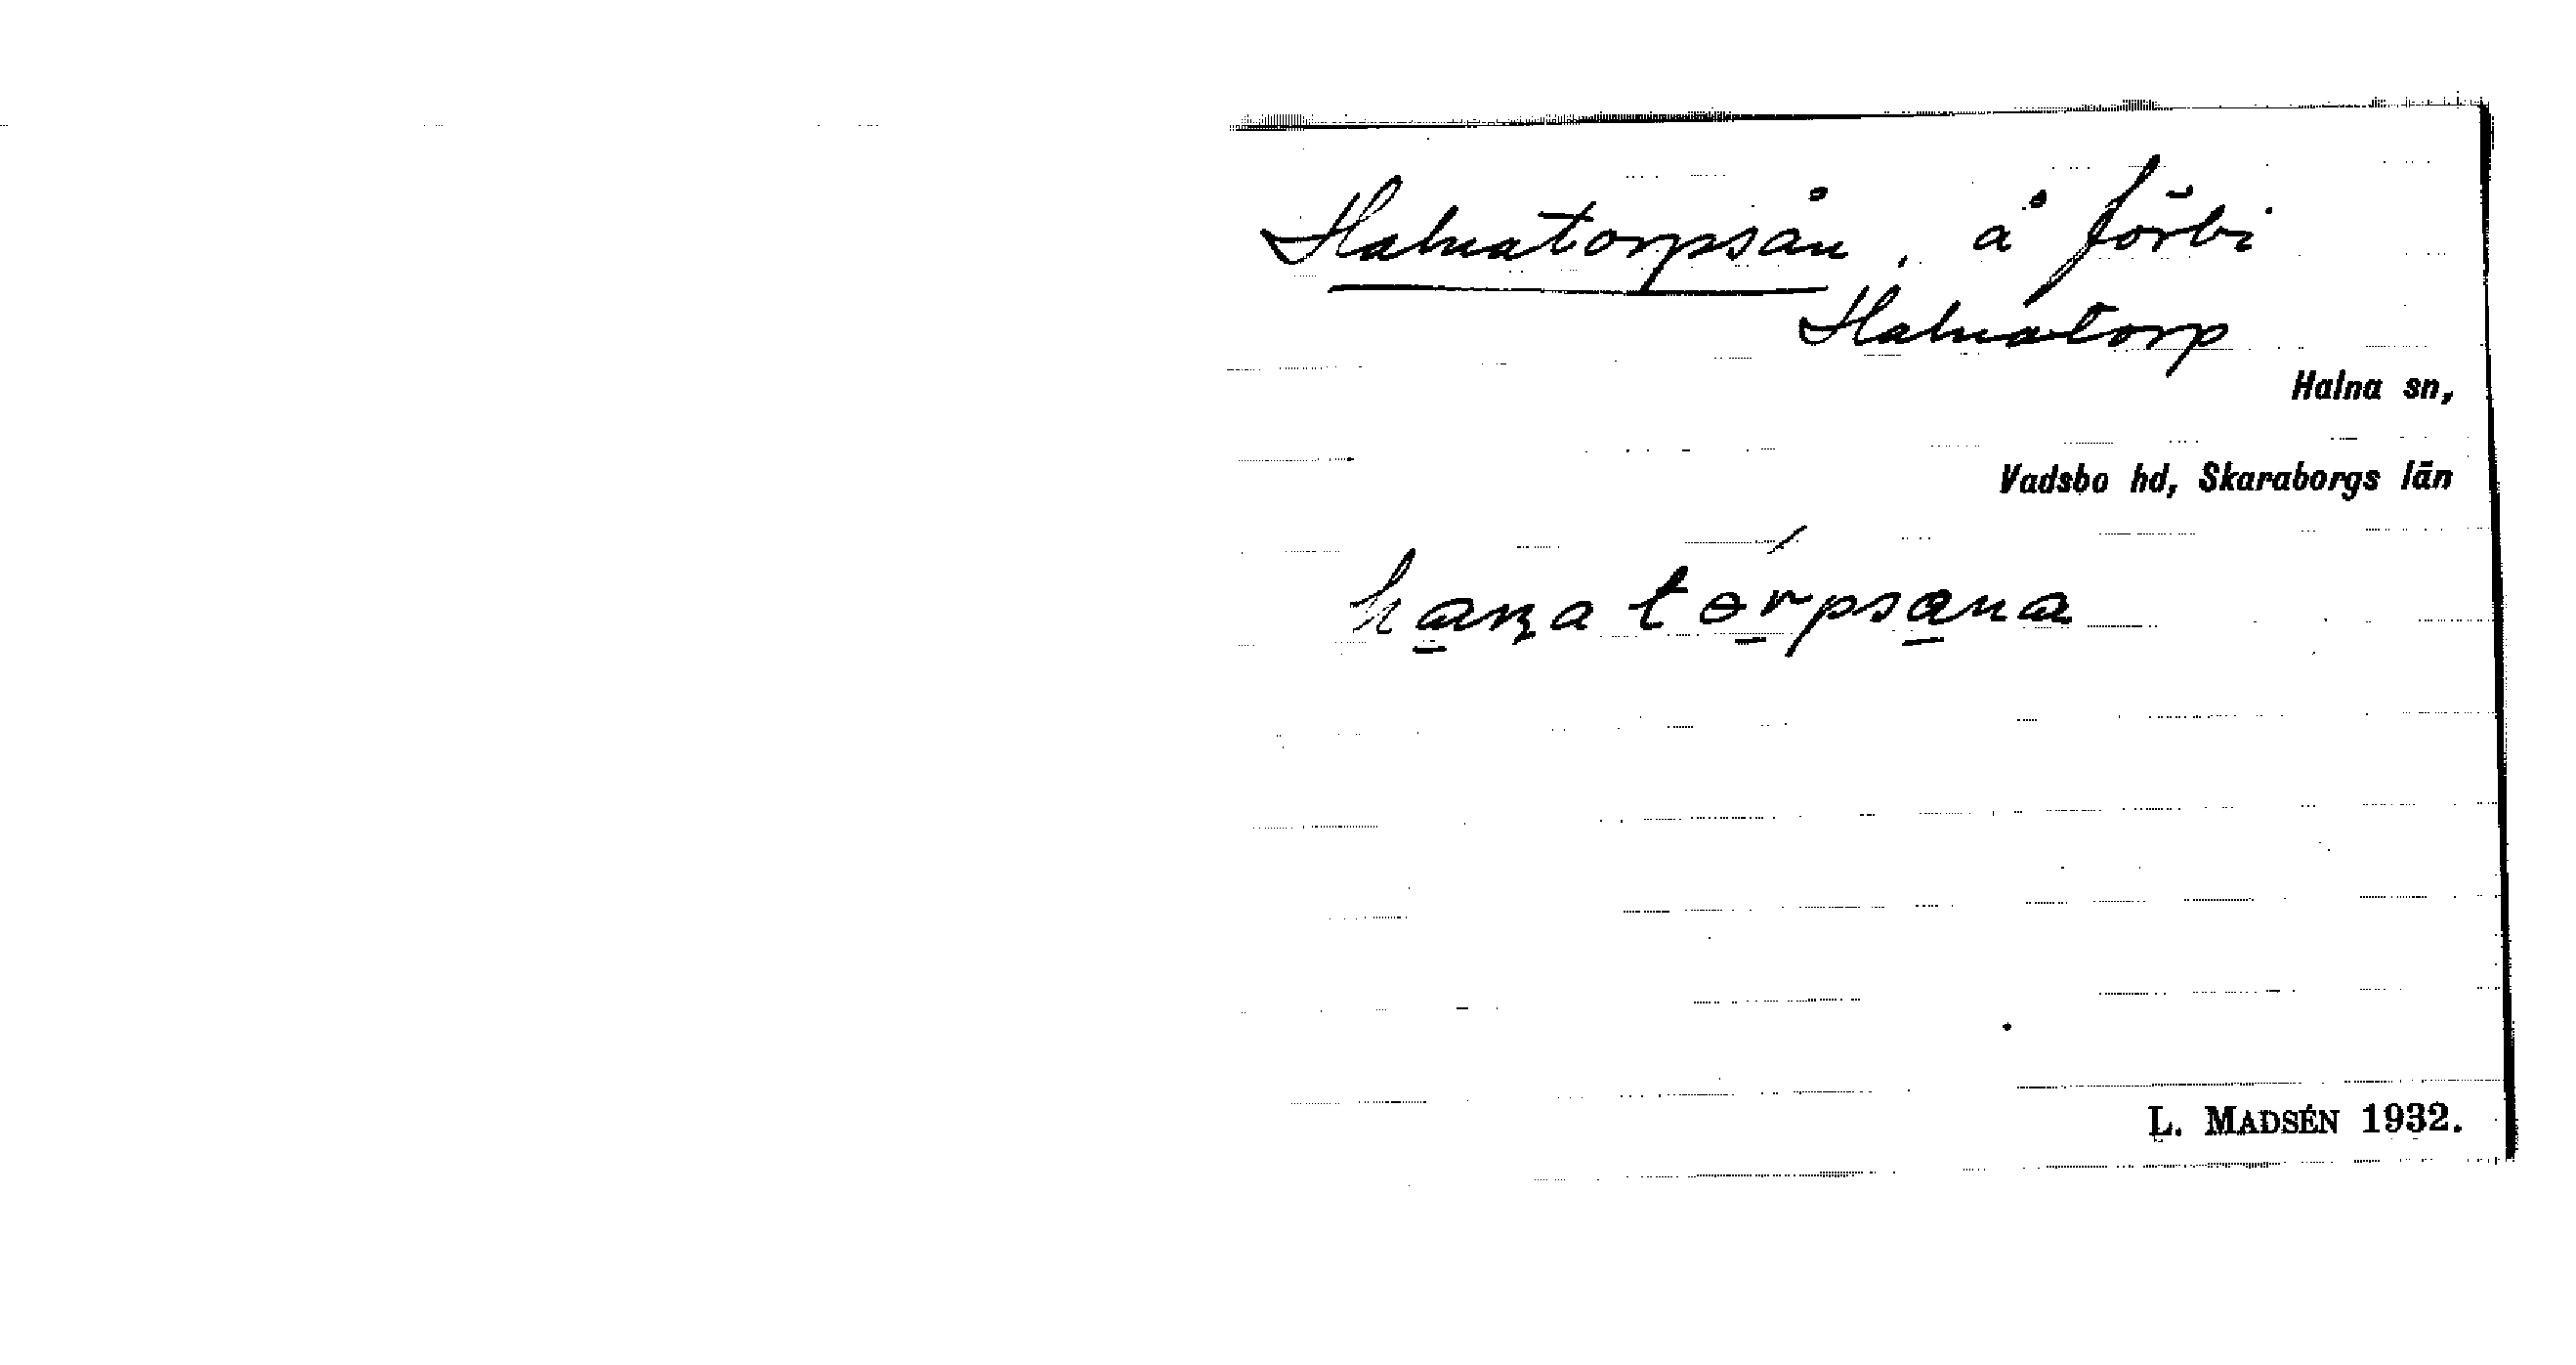 Halnatorpsån, å förbi
Halnatorp
Halna sn,
Vadsbo hd, Skaraborgs län
L. MADSÉN 1932.